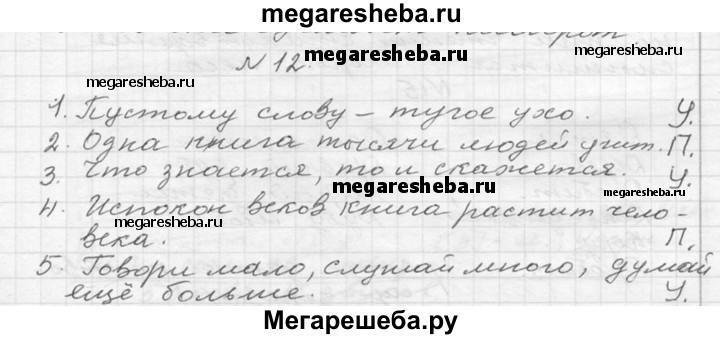 megaresheba.ru
N 12.
megaresheba.ru
megaresheba.ru
1. Пустому слову – тугое ухо. У.
2. Одна книга тысячи людей учит. П.
3. Что знается, то и скажется. У.
megaresheba.ru
megaresheba.ru
4. Испокон веков книга растит чело-
века. П.
5. Говори мало, слушай много, думай
ещё больше. У.
Мегарешеба.ру